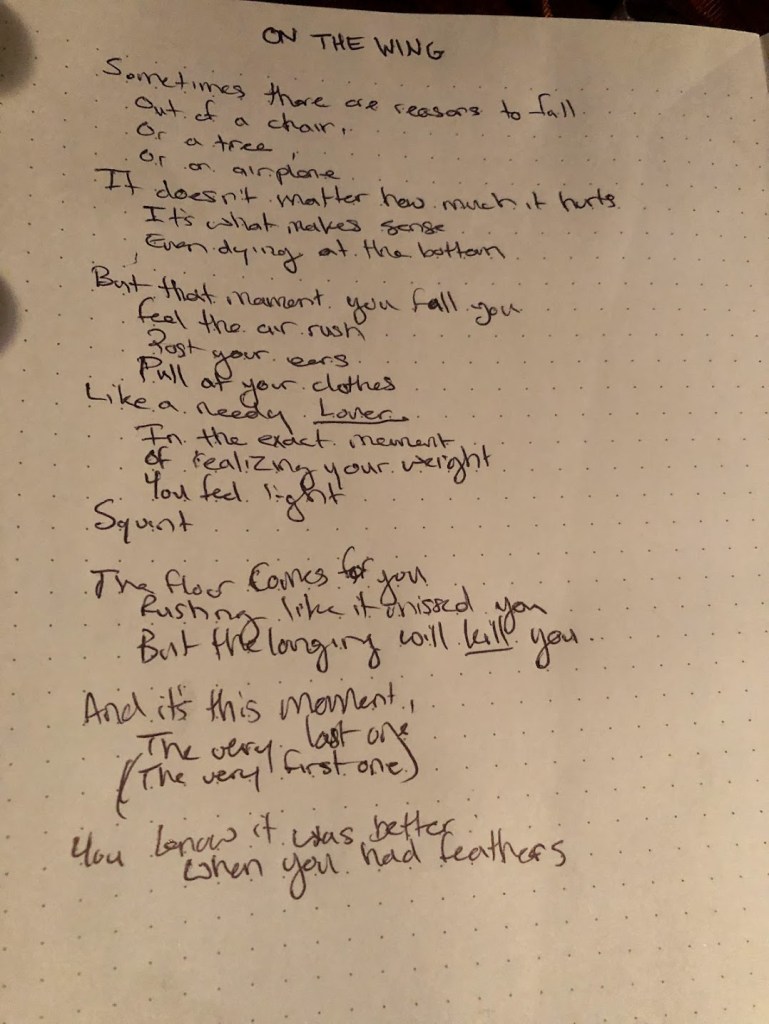 ON THE WING
Sometimes there are reasons to fall
Out of a chair,
Or a tree
Or an airplane
It doesn't matter how much it hurts
It's what makes sense
Even dying at the bottom
But that moment you fall you
feel the air rush
Past your ears
Pull at your clothes
Like a needy Lover
In the exact moment
of realizing your weight
You feel light
Squint
The floor comes for you
Rushing like it missed you
But the longing will kill you
And it's this moment,
The very last one
(The very first one)
You know it was better
when you had feathers